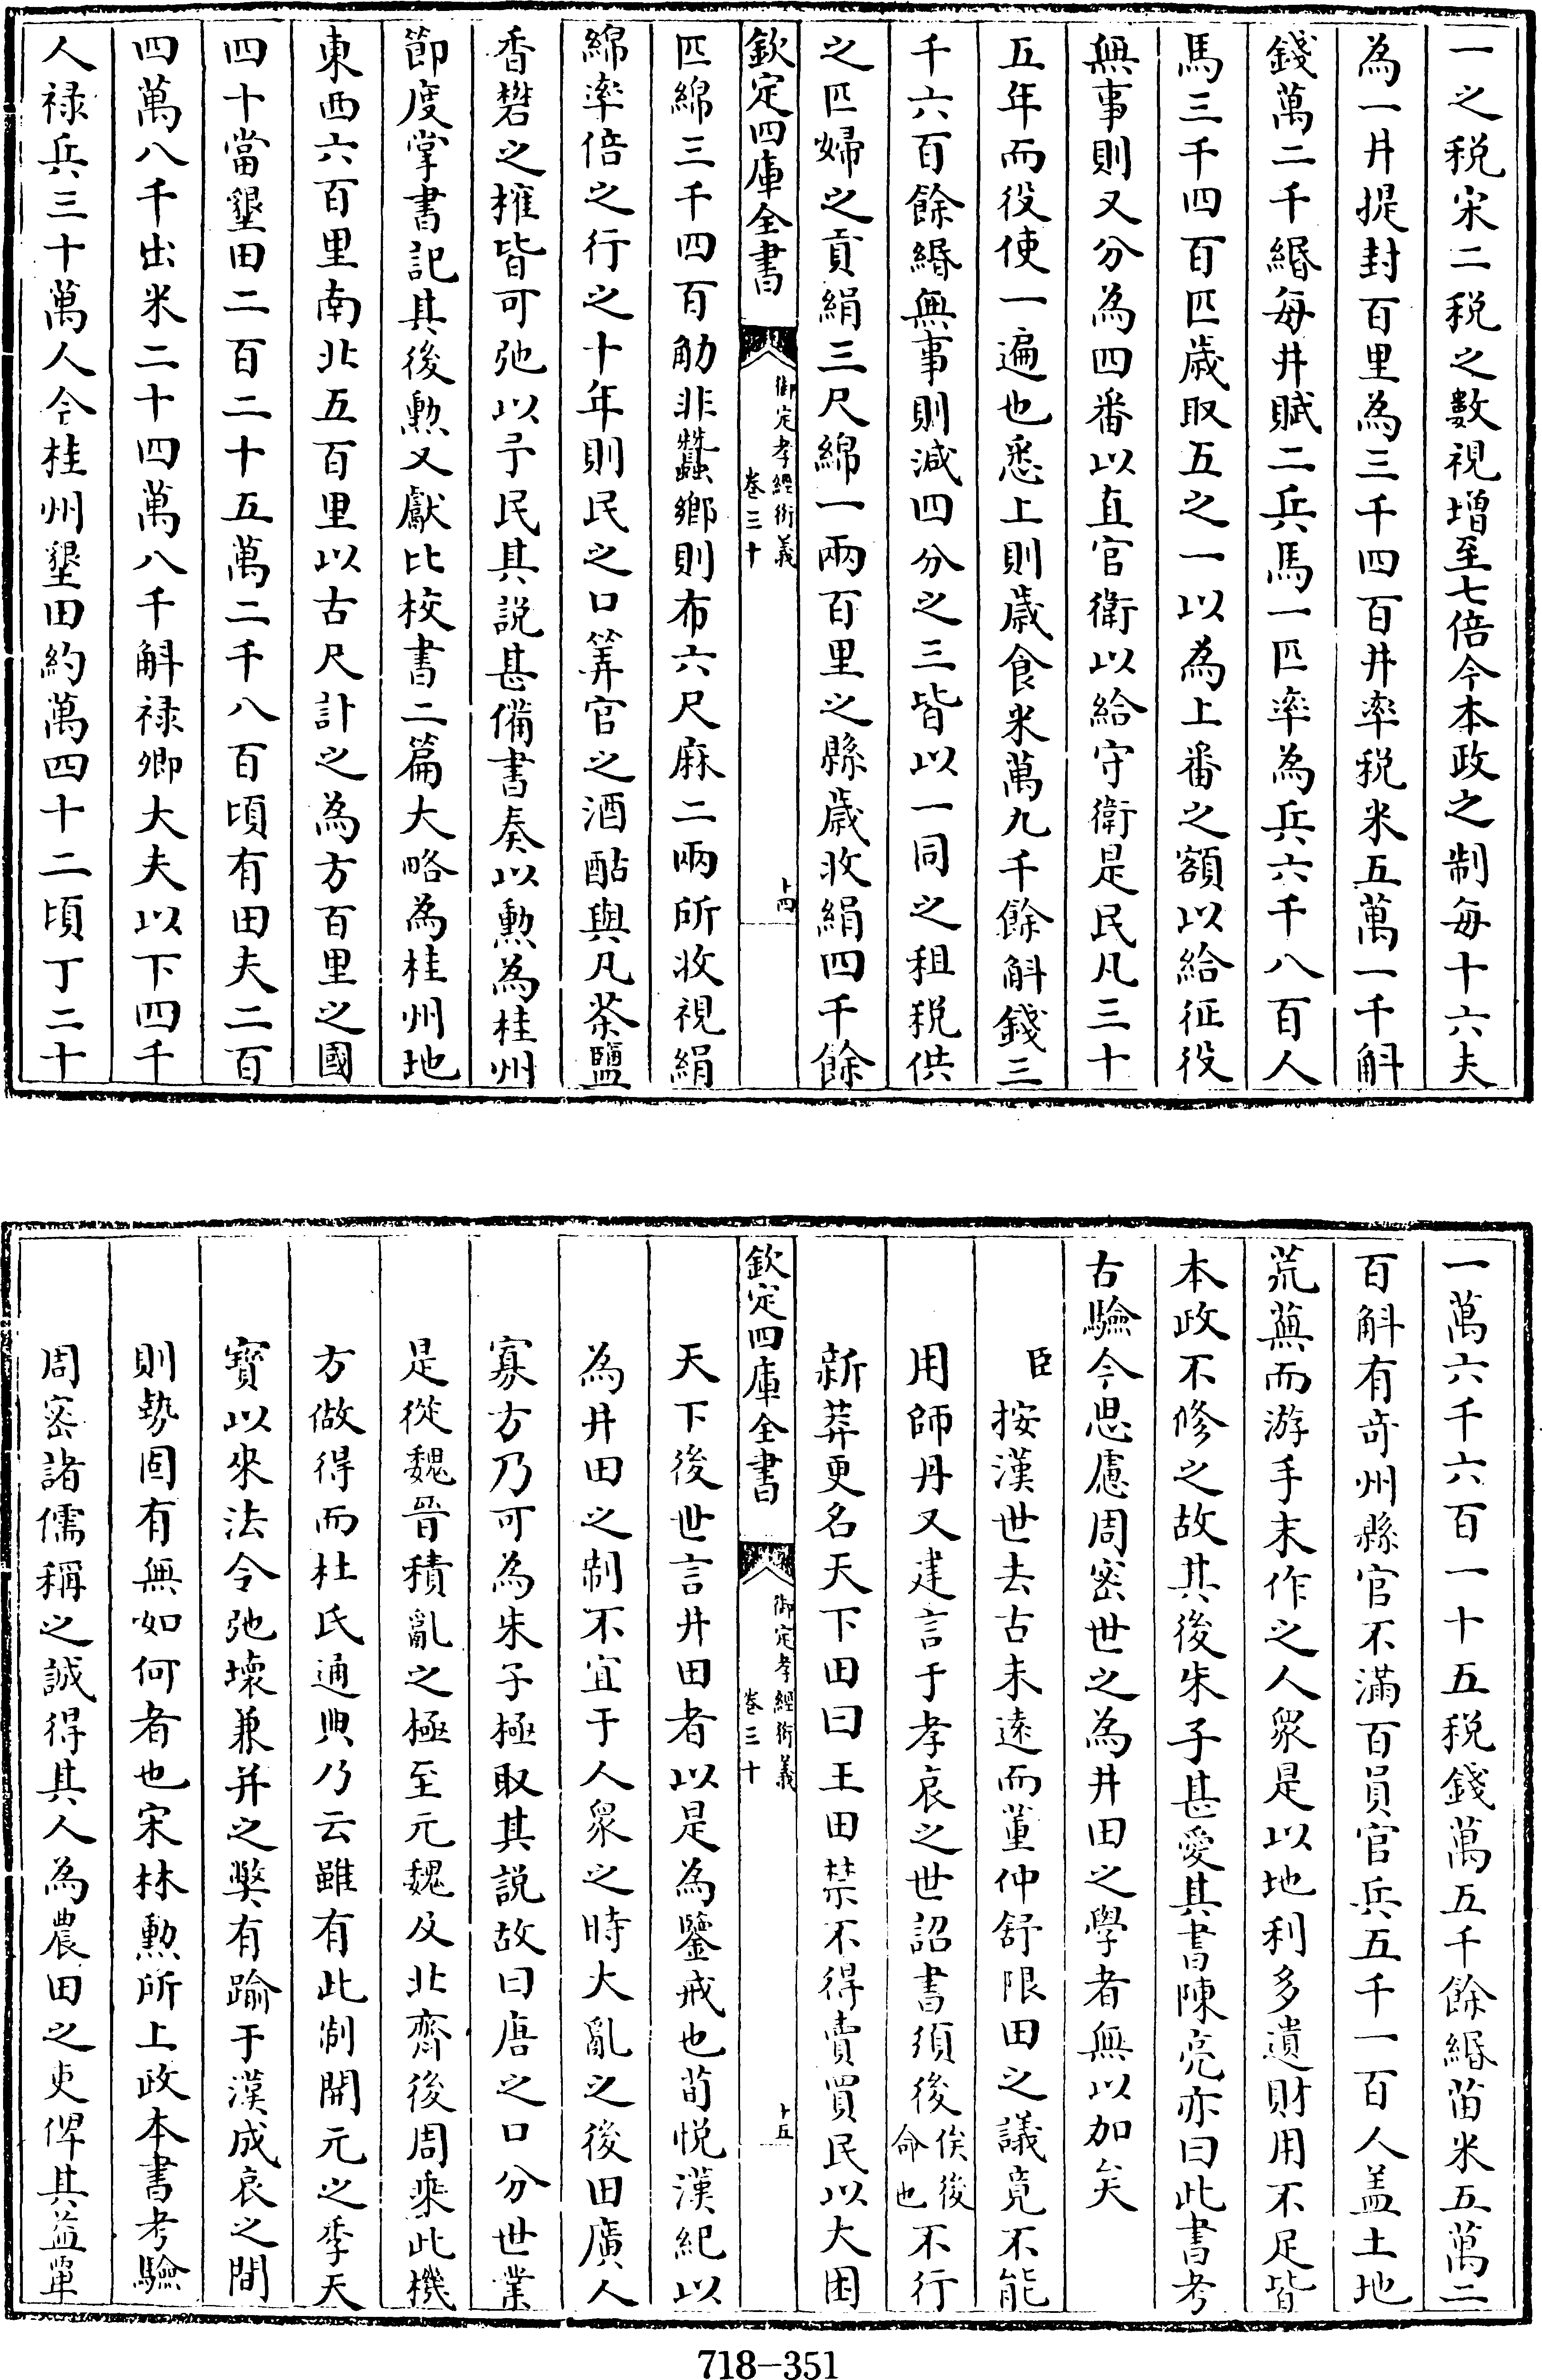 一之税宋二税之數視增至七倍今本政之制每十六夫
為一井提封百里為三千四百井率税米五萬一千斛
錢萬二千緡每井賦二兵馬一匹率為兵六千八百人
馬三千四百匹歲取五之一以為上番之額以給征役
無事則又分為四番以直官衛以給守衛是民凡三十
五年而役使一遍也悉上則歲食米萬九千餘斛錢三
千六百餘緡無事則減四分之三皆以一同之租税供
之匹婦之貢絹三尺綿一兩百里之縣歲收絹四千餘
欽定四庫全書 御定孝經衍義 卷三十 十四
匹綿三千四百觔非蠶鄉則布六尺麻二兩所收視絹
綿率倍之行之十年則民之口筭官之酒酤與凡茶鹽
香礬之榷皆可弛以予民其説甚備書奏以勲為桂州
節度掌書記其後勲又獻比校書二篇大略為桂州地
東西六百里南北五百里以古尺計之為方百里之國
四十當墾田二百二十五萬二千八百頃有田夫二百
四萬八千出米二十四萬八千斛禄卿大夫以下四千
人禄兵三十萬人今桂州墾田約萬四十二頃丁二十
一萬六千六百一十五税錢萬五千餘緡苗米五萬二
百斛有奇州縣官不滿百員官兵五千一百人盖土地
荒蕪而游手末作之人衆是以地利多遺財用不足皆
本政不修之故其後朱子甚愛其書陳亮亦曰此書考
古驗今思慮周密世之為井田之學者無以加矣
臣按漢世去古未遠而董仲舒限田之議竟不能
用師丹又建言于孝哀之世詔書須後俟後命也不行
新莽更名天下田曰王田禁不得賣買民以大困
欽定四庫全書 御定孝經衍義 卷三十 十五
天下後世言井田者以是為鑒戒也荀悦漢紀以
為井田之制不宜于人衆之時大亂之後田廣人
寡方乃可為朱子極取其説故曰唐之口分世業
是從魏晉積亂之極至元魏及北齊後周乘此機
方做得而杜氏通典乃云雖有此制開元之季天
寳以來法令弛壞兼并之弊有踰于漢成哀之間
則勢固有無如何者也宋林勲所上政本書考驗
周密諸儒稱之誠得其人為農田之吏俾其益單
718-351